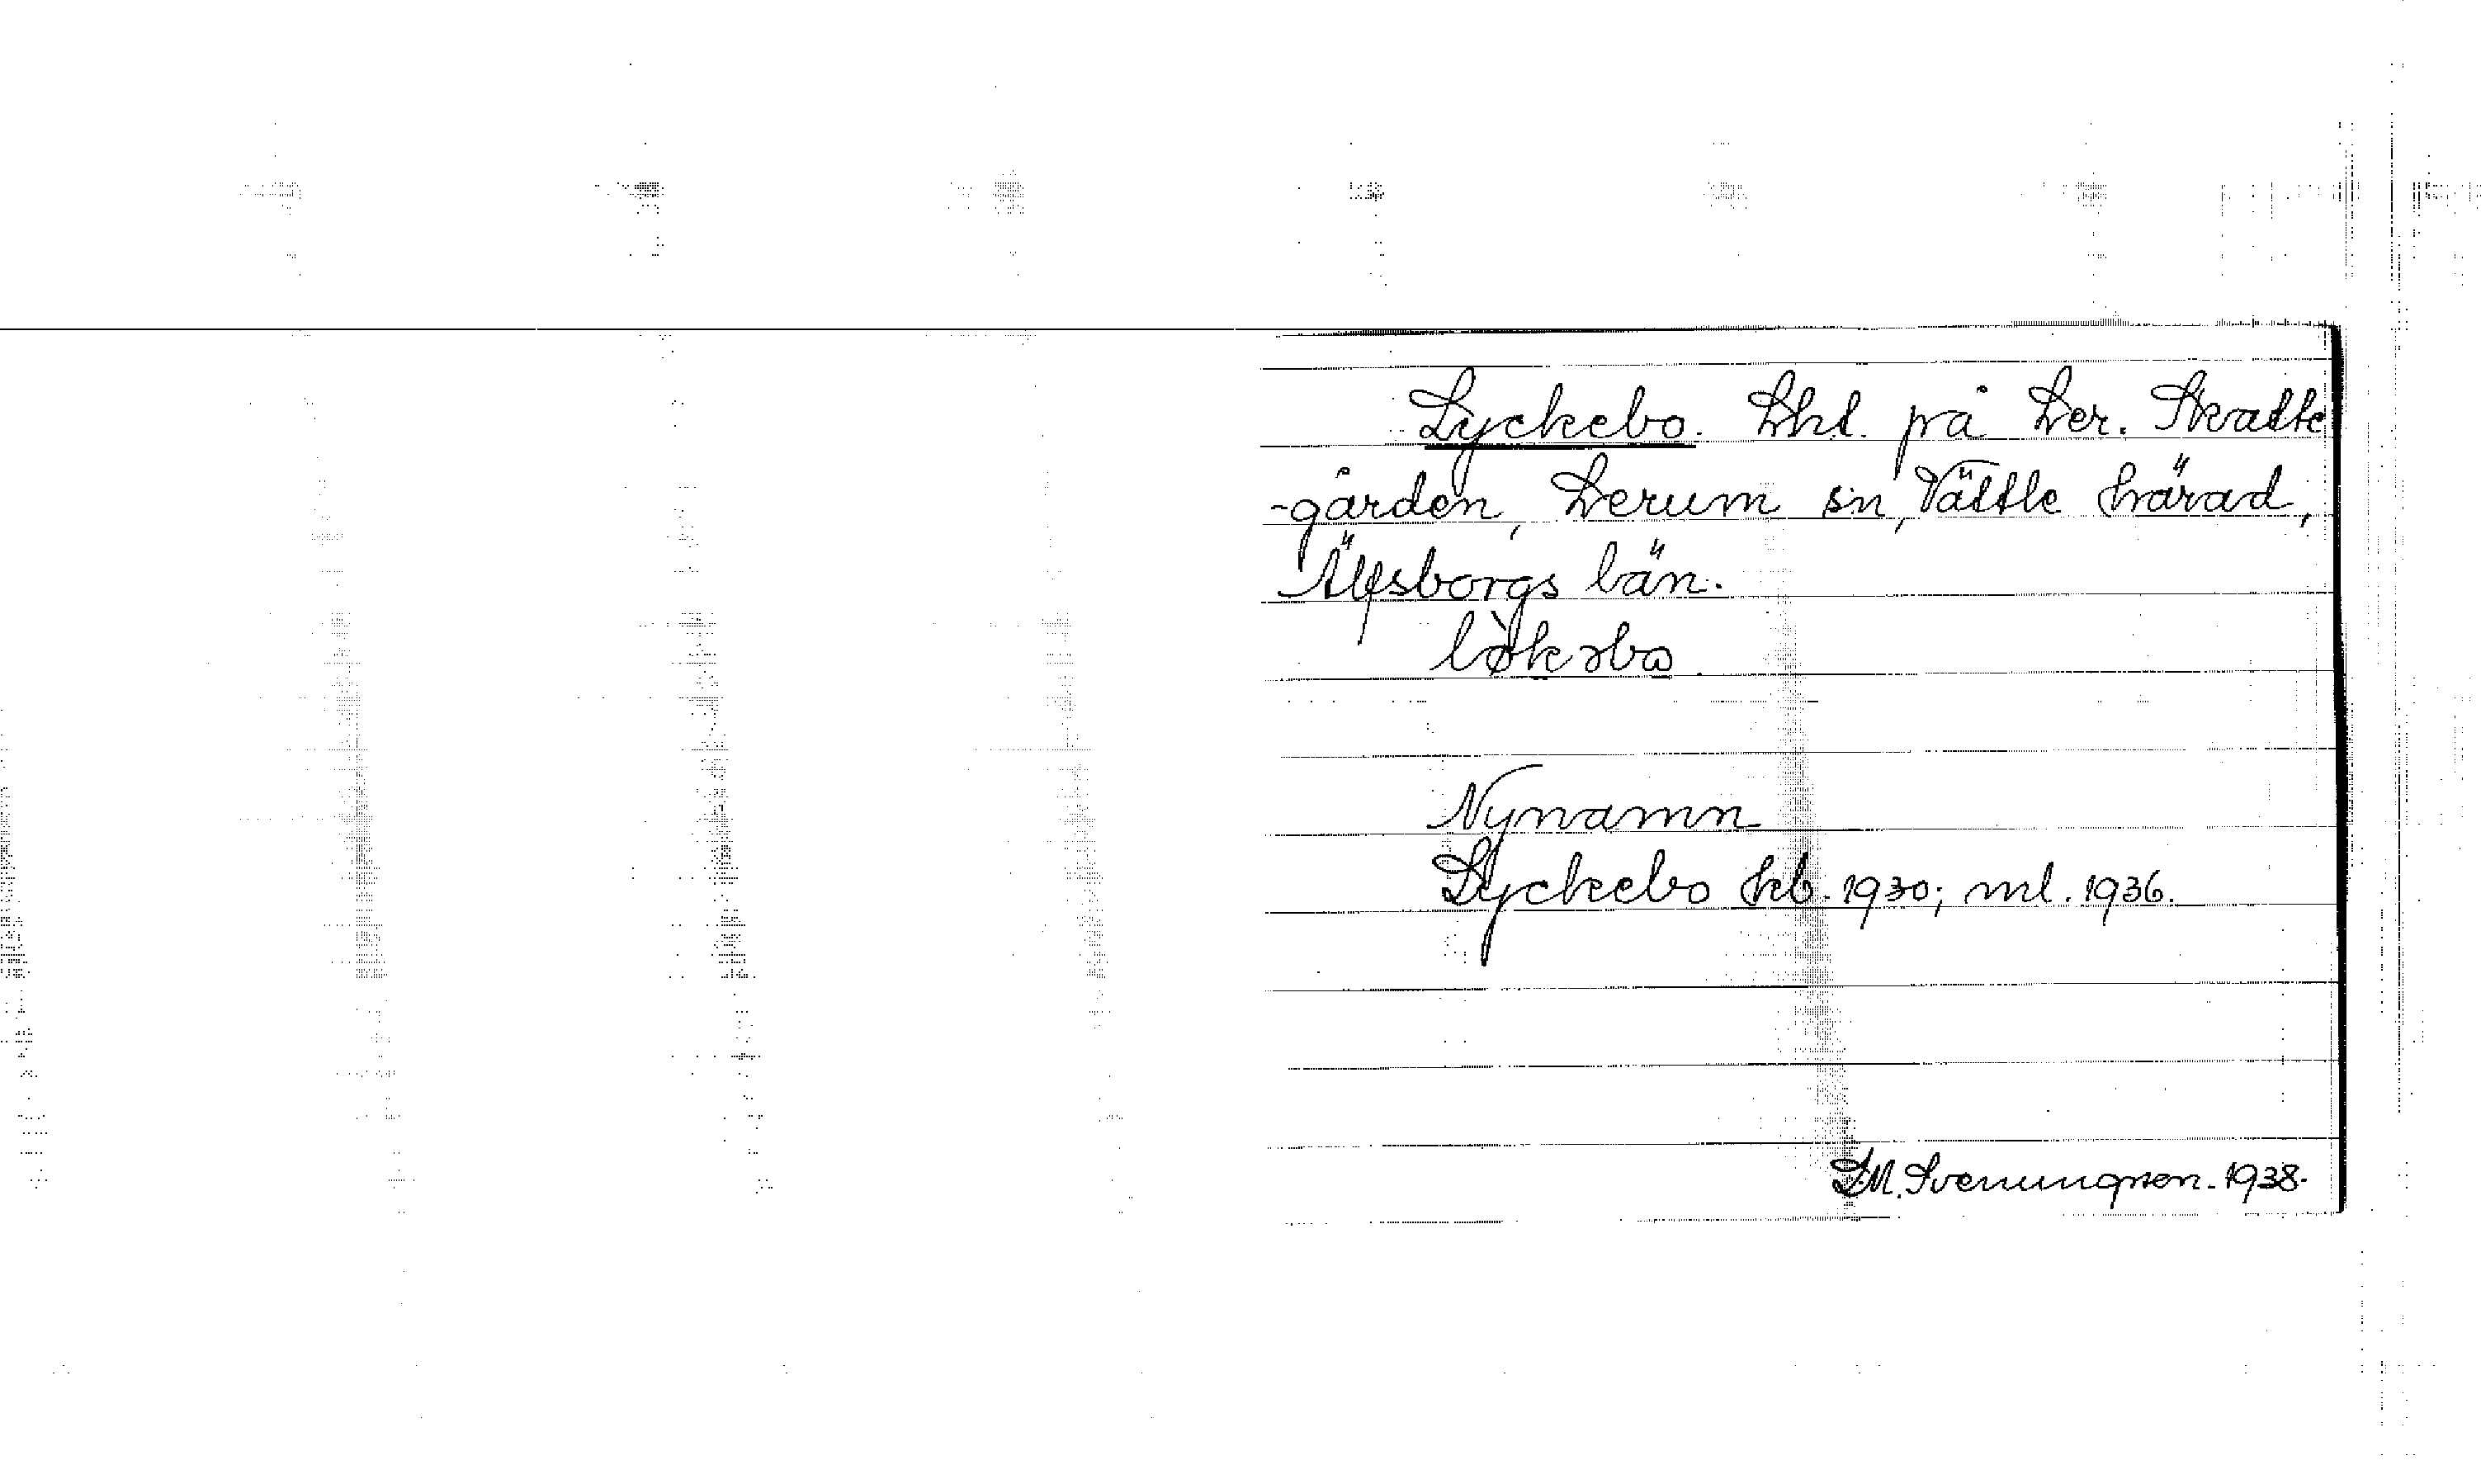 Lyckebo. Lht. på Ler. Skatte
-gården, Lerum sn, Vättle härad,
Älfsborgs län.
lø̀kəbo
Nynamn
Lyckebo hb. 1930; ml. 1936.
L.M. Svenungsson. 1938.